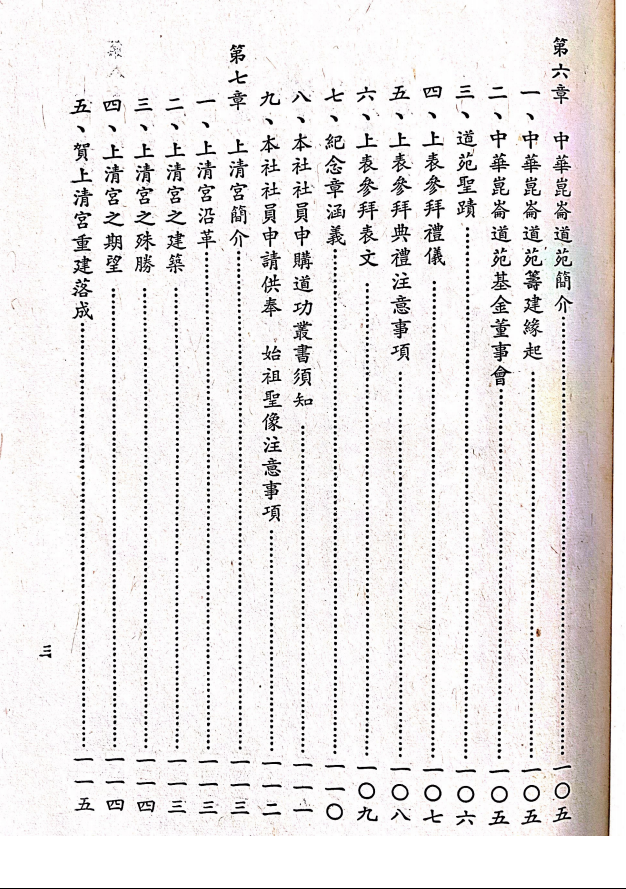 第六章　中華崑崙道苑簡介………一〇五
一、中華崑崙道苑籌建緣起………一〇五
二、中華崑崙道苑基金董事會………一〇五
三、道苑聖蹟………一〇六
四、上表參拜禮儀………一〇七
五、上表參拜典禮注意事項………一〇八
六、上表參拜表文………一〇九
七、紀念章涵義………一一〇
八、本社社員申購道功叢書須知………一一一
九、本社社員申請供奉　始祖聖像注意事項………一一二
第七章　上清宮簡介………一一三
一、上清宮沿革………一一三
二、上清宮之建築………一一三
三、上清宮之殊勝………一一四
四、上清宮之期望………一一四
五、賀上清宮重建落成………一一五
三